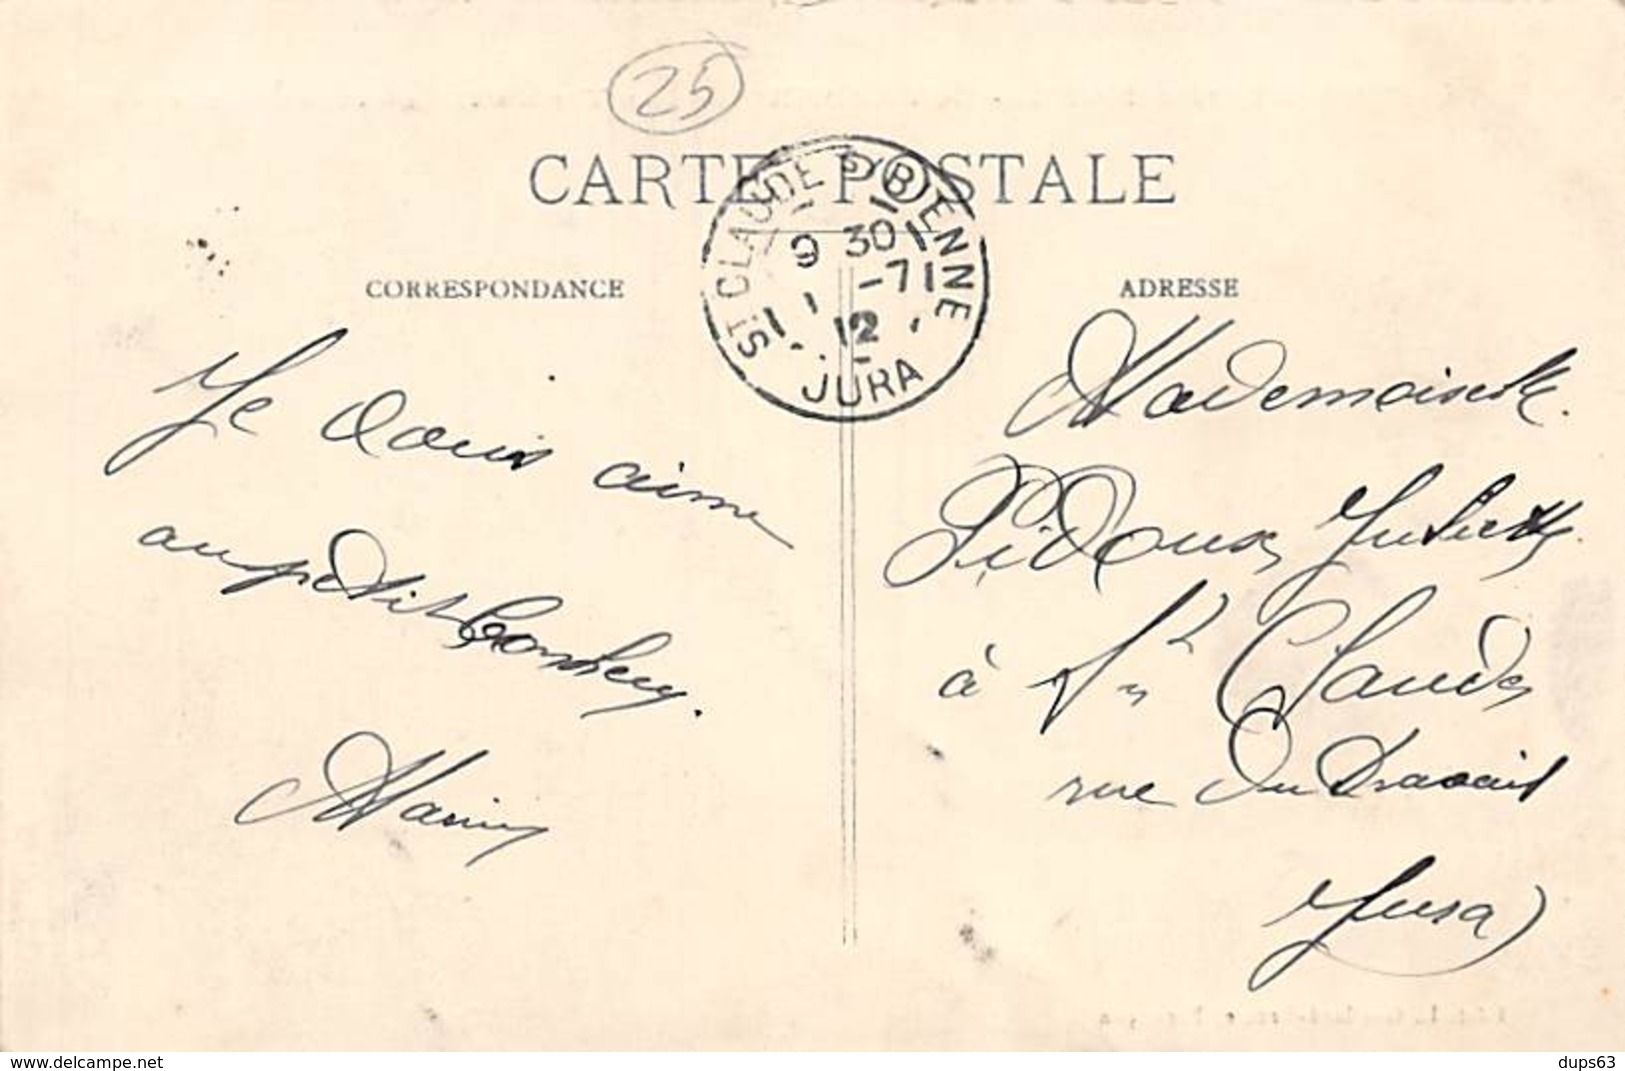 25
CARTE POSTALE
ST CLAUDE S/ BIENNE
9 30
1 -71
12
JURA
CORRESPONDANCE
Je vous aime
au petit
Many
ADRESSE
Mademoiselle.
Pidoux Juliette
à St Claude
rue du
Jura)
www.delcampe.net
dups63